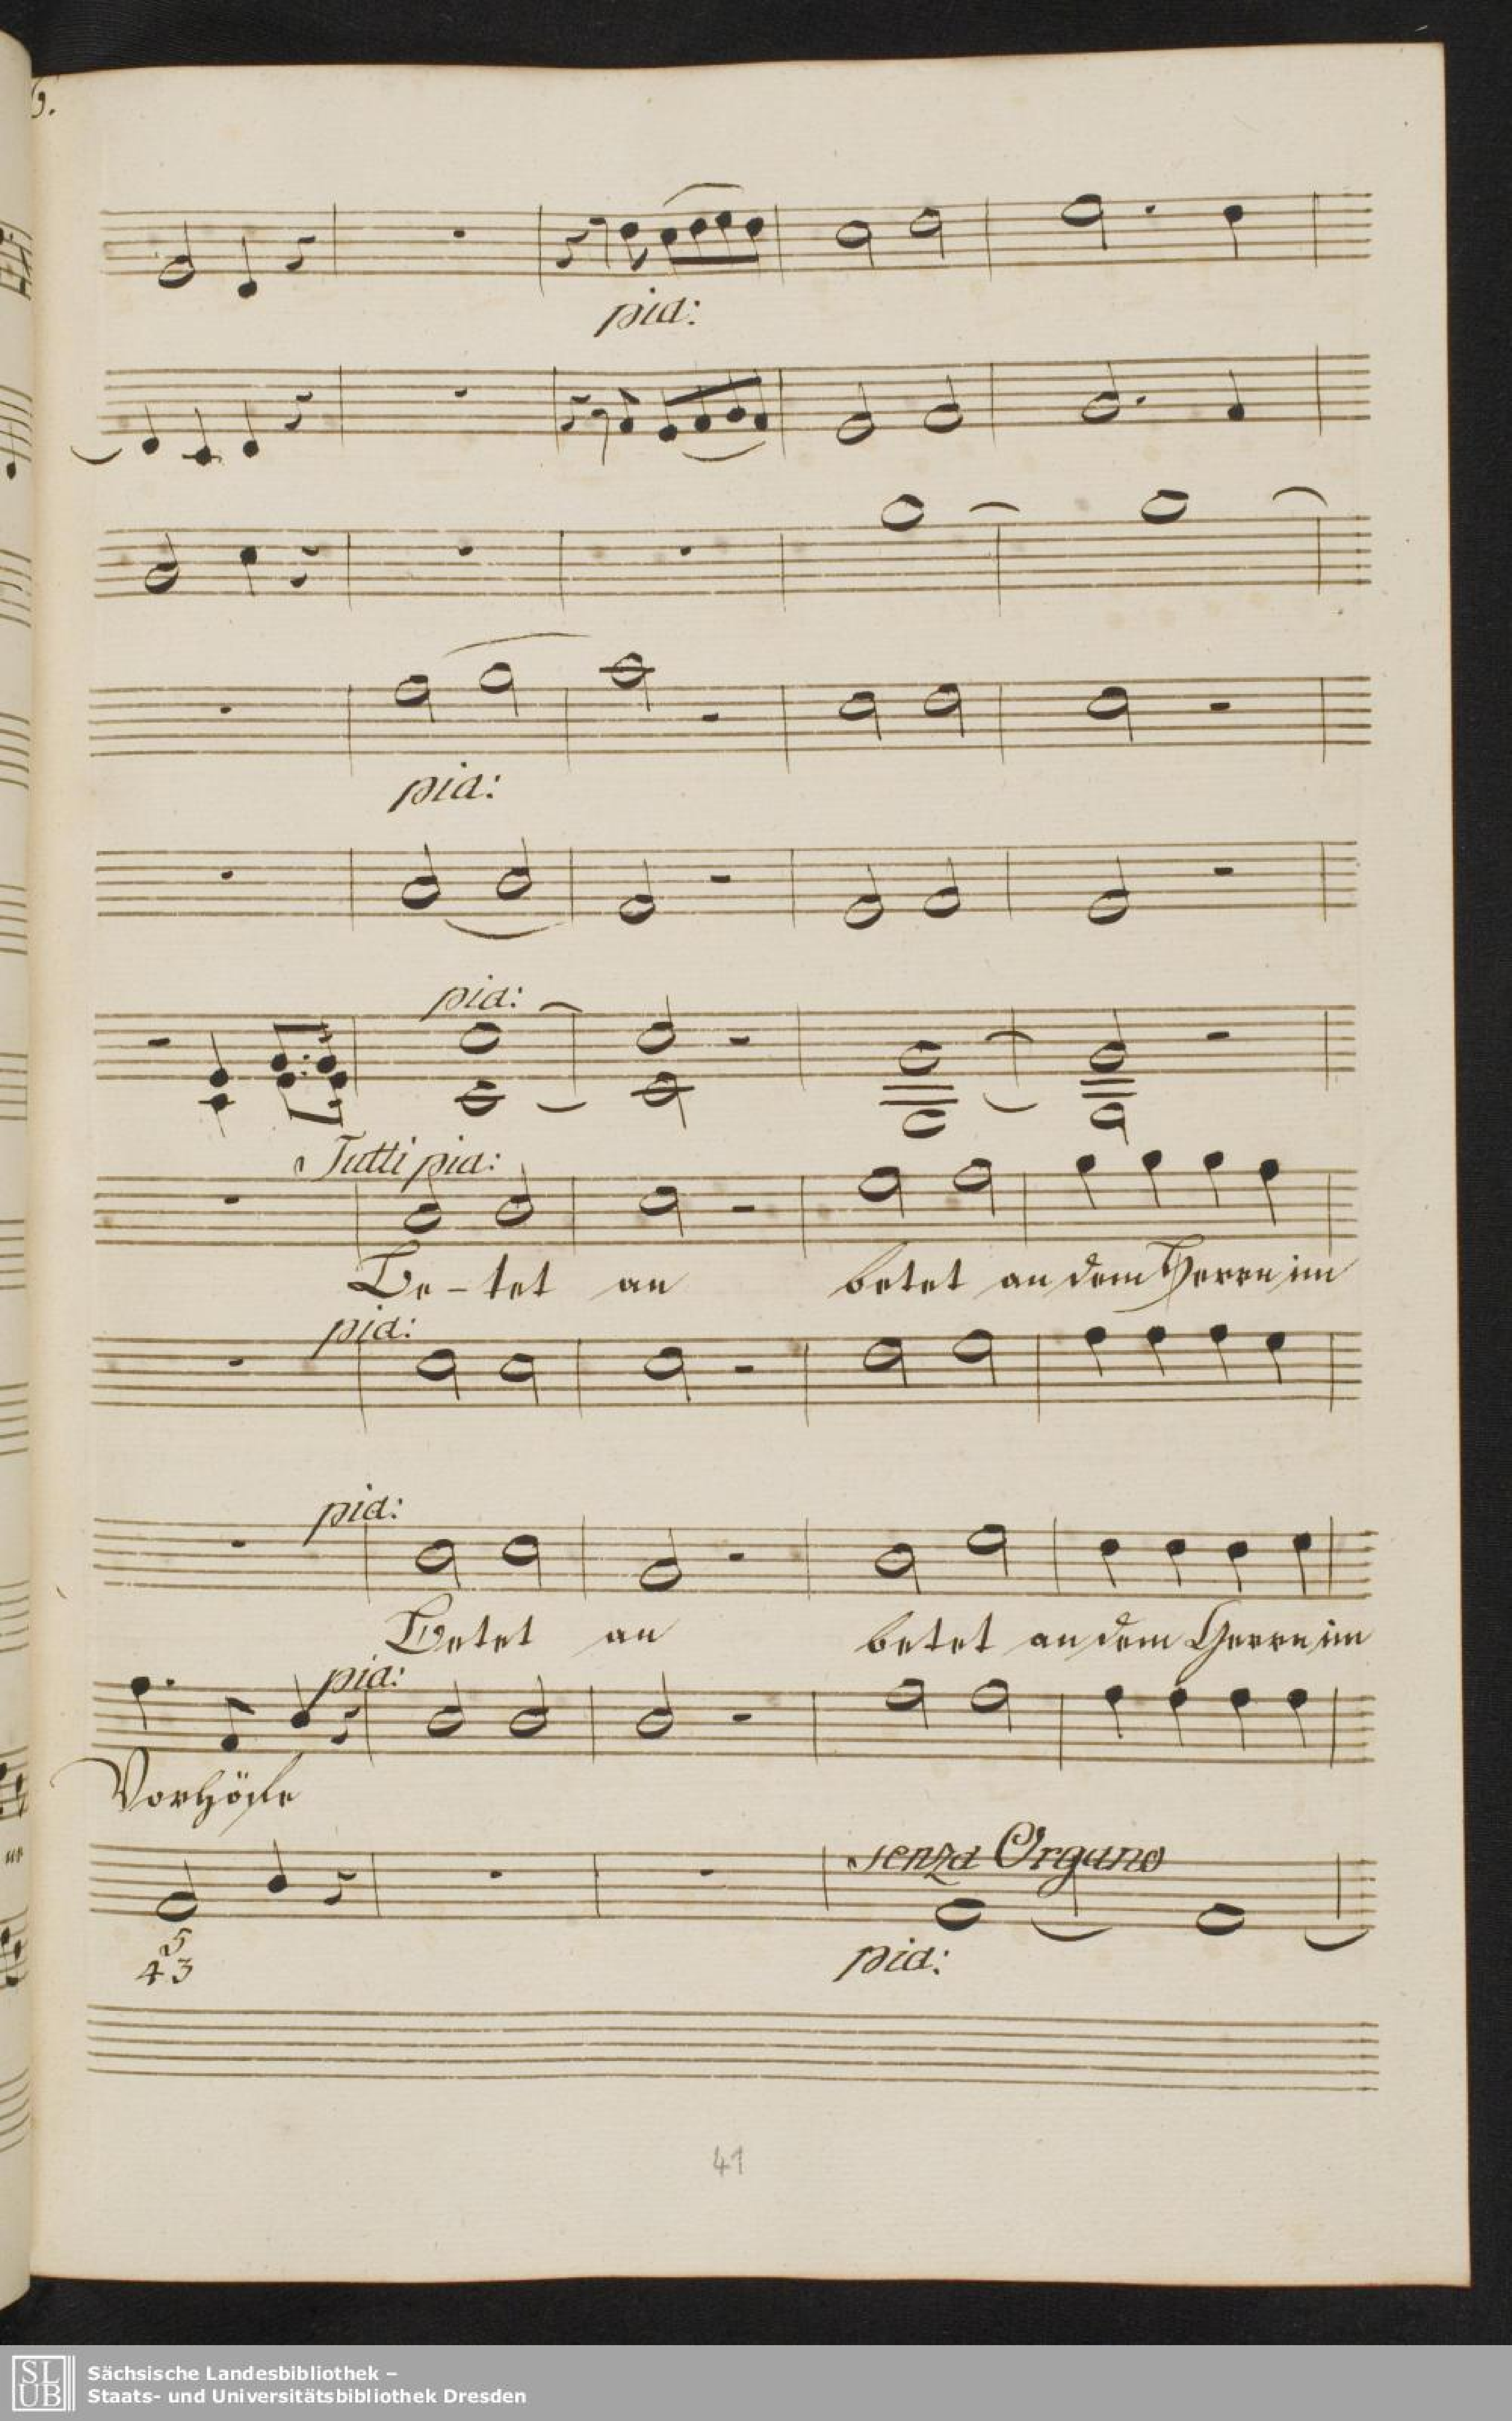 6.
pia:
pia:
pia:
Tutti pia:
Be-tet an betet an dem Herrn im
pia:
pia:
Betet an betet an dem Herrn im
pia:
Vorhöfe
senza Organo
5
4 3
pia:
41
SLUB
Sächsische Landesbibliothek –
Staats- und Universitätsbibliothek Dresden